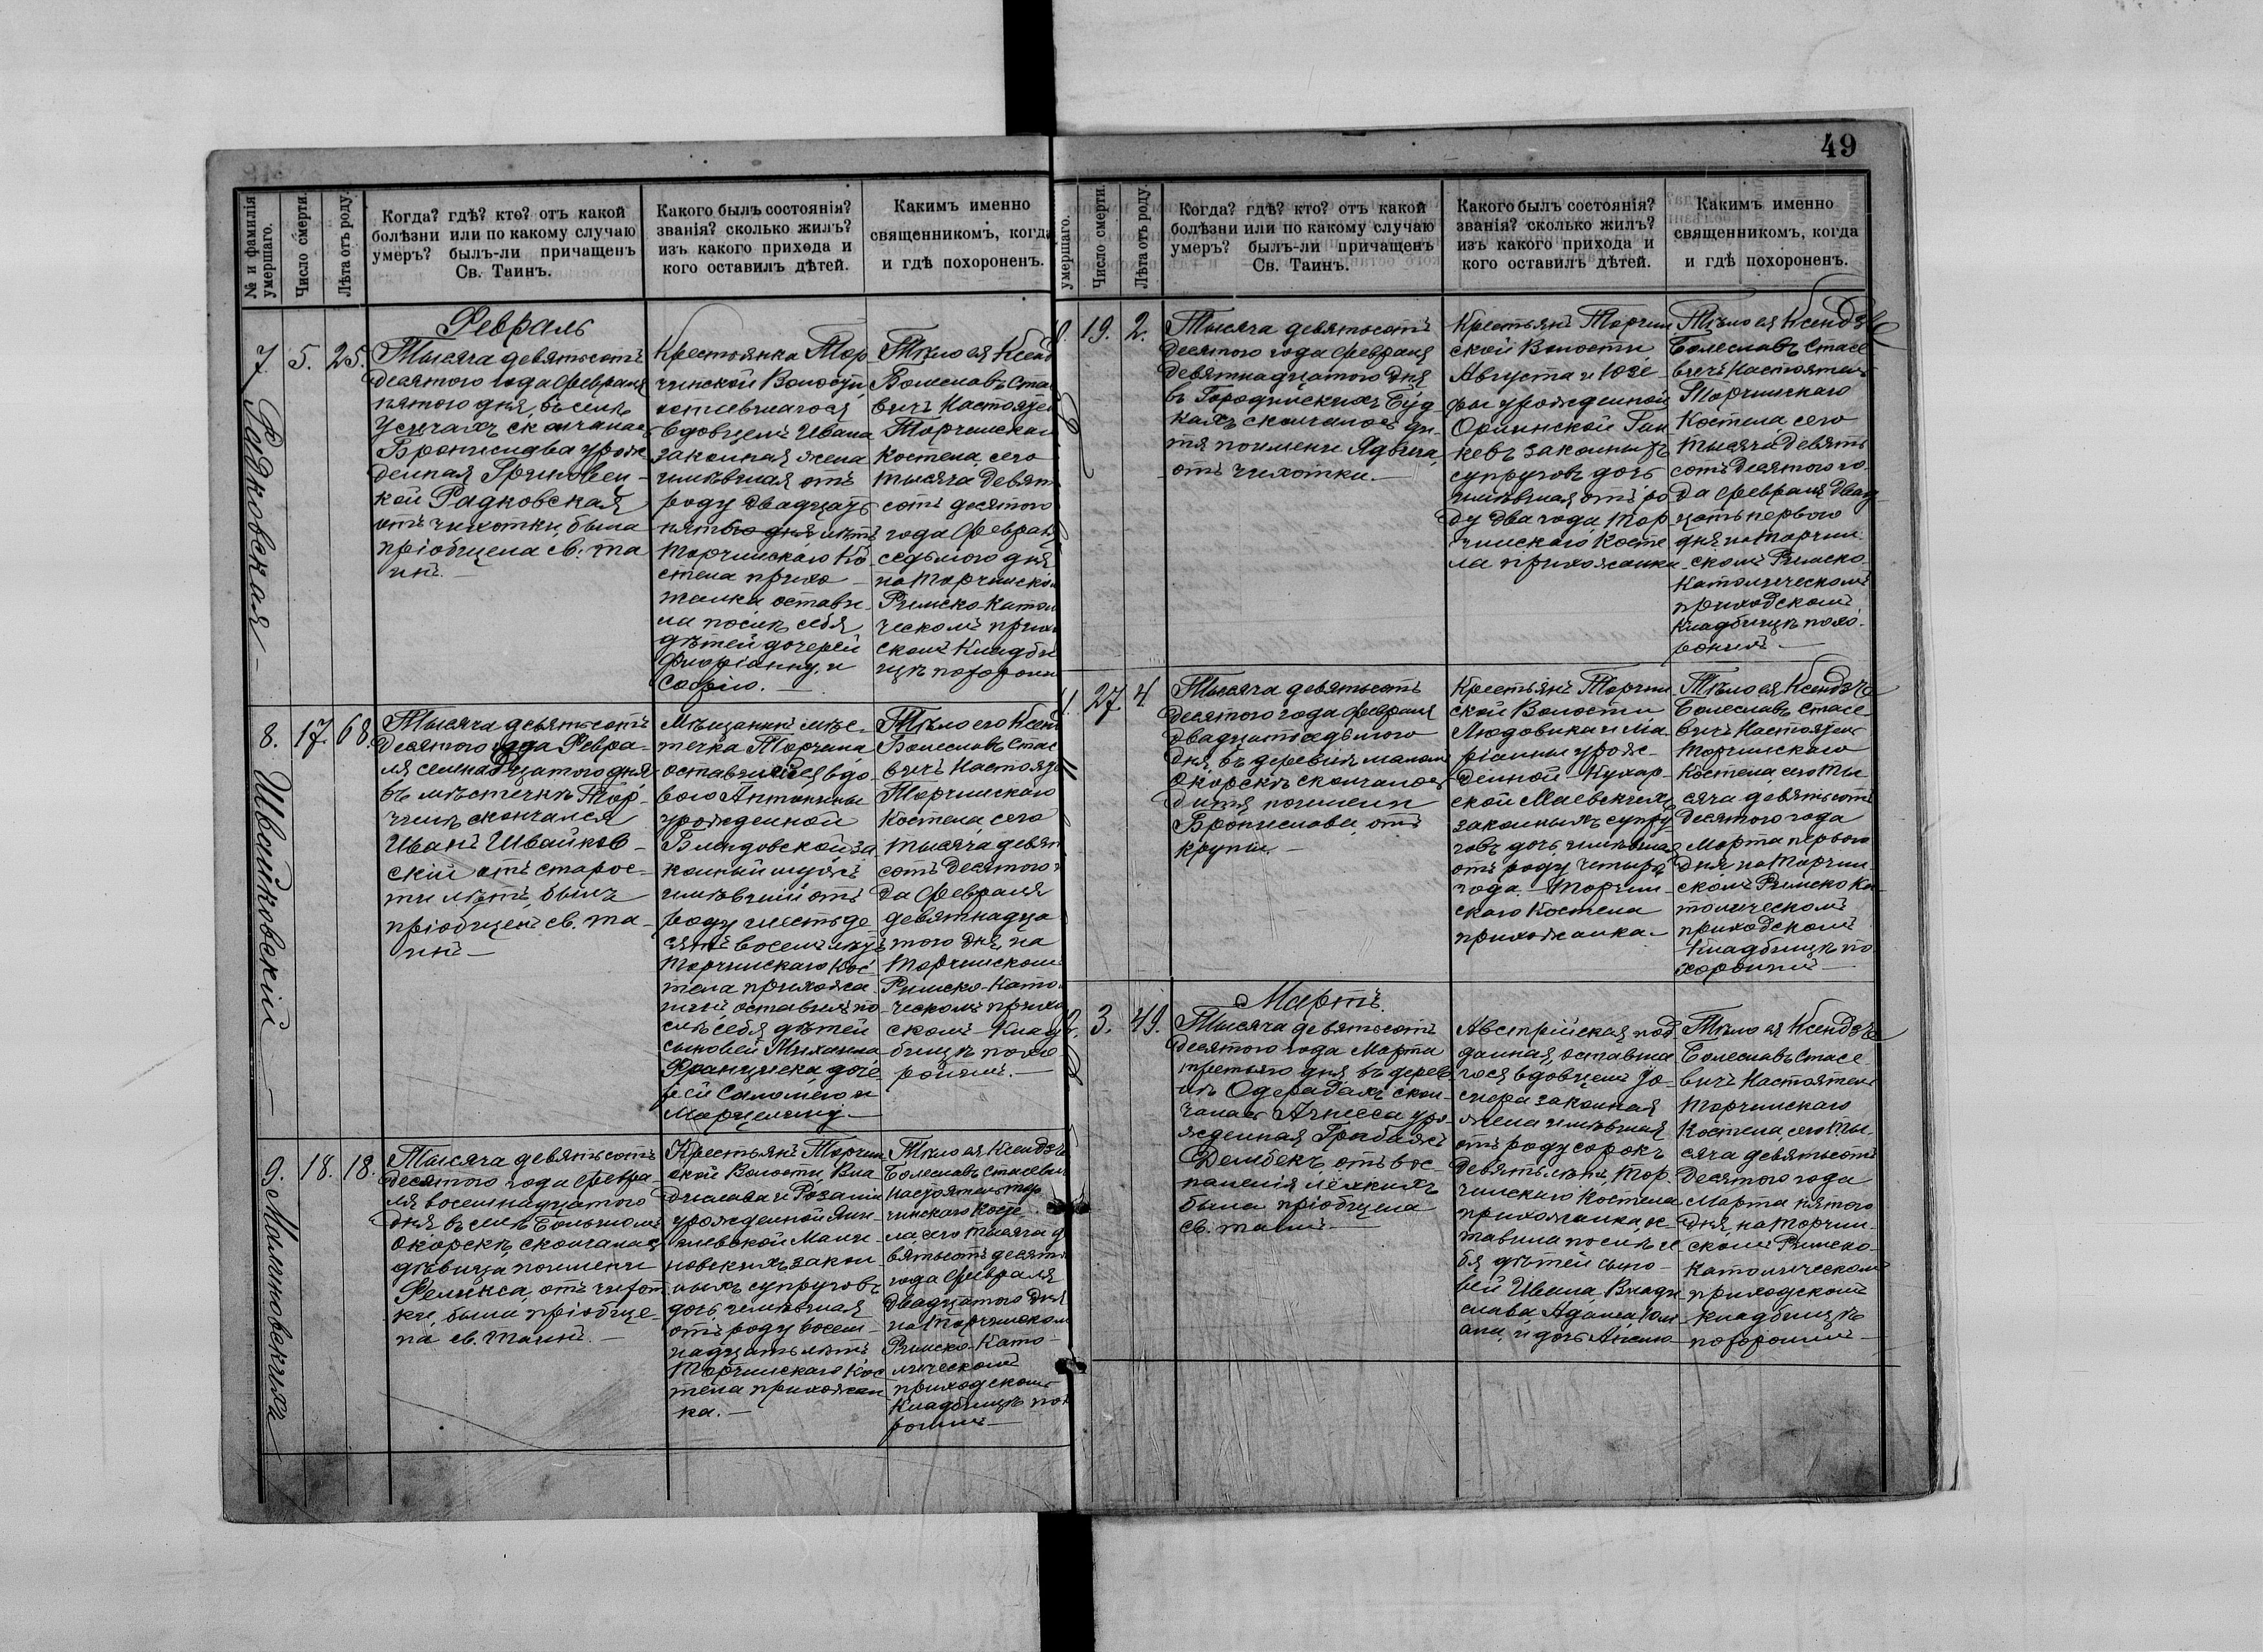 49
№ и фамилія умершаго.
Число смерти.
Лѣта отъ роду.
Когда? гдѣ? кто? отъ какой
болѣзни или по какому случаю
умеръ? былъ-ли причащенъ
Св. Таинъ.
Какого былъ состоянія?
званія? сколько жилъ?
изъ какого прихода и
кого оставилъ дѣтей.
Какимъ именно
священникомъ, когда
и гдѣ похороненъ.
Февраль
7. Радковская
5.
25.
Тысяча девятьсотъ
десятого года февраля
пятого дня, въ селѣ
скончалась
Бронислава урож-
денная
Радковская
отъ чихотки, была
пріобщена св. та
инъ.
Крестьянка Тор
чинской Волости,
оставшагося
вдовцемъ Ивана
законная жена
имѣвшая отъ
роду двадцать
пять лѣтъ
Торчинскаго Ко
стела прихо
жанка, остави
ла послѣ себя
дѣтей дочерей
Флоріанну, и
Софію.
Тѣло ея Ксенд
Болеславъ Ста
вичъ Настояте
Торчинскаг
Костела, сего
тысяча девят
сотъ десятого
года февраля
седьмого дня
на Торчинском
Римско-Катол
ческомъ прихо
скомъ Кладби
щѣ похорони
8. Швайковскій
17.
68.
Тысяча девятьсотъ
десятого года Февра-
ля семнадцатого дня
въ мѣстечкѣ Тор-
чинѣ скончался
Иванъ Швайков-
скій отъ старос-
ти лѣтъ, былъ
пріобщенъ св. та-
инъ
Мѣщанинъ мѣс-
течка Торчина,
оставшейся вдо-
вою Антонины
урожденной
Блиндовской за
конный мужъ
имѣвшій отъ
роду шестьде-
сятъ восемь лѣтъ
Торчинскаго Кос-
тела прихожа
нинъ, оставилъ по
слѣ себя дѣтей
сыновей Михаила
Франциска, доче-
рей Саломею и
Марцелину
Тѣло его Ксенд
Болеславъ Стас
вичъ Настояте
Торчинскаго
Костела, сего
тысяча девят
сотъ десятого г
да февраля
девятнадца
того дня, на
Торчинском
Римско-Като
ческомъ прихо
скомъ Клад
бищѣ похо
ронилъ.
9. Малиновскихъ
18.
18.
Тысяча девятьсотъ
десятого года февра
ля восемнадцатого
дня въ селѣ Большомъ
Окорскѣ, скончалась
дѣвица по имени
Феликса, отъ чихот
ки, была пріобще-
на св. таинъ.
Крестьянъ Торчин
ской Волости, Вла
дислава и Розаліи
урожденной
Мали-
новскихъ закон
ныхъ супруговъ
дочь имѣвшая
отъ роду восем-
надцать лѣтъ
Торчинскаго Кос
тела прихожан
ка.
Тѣло ея Ксендзъ
Болеславъ Стасевич
Настоятель Тор
чинскаго Косте
ла, сего тысяча д
вятьсотъ десят
года февраля
двадцатого дня
на Торчинском
Римско-Като-
лическомъ
приходскомъ
Кладбищѣ пох
ронилъ
19.
2.
Тысяча девятьсотъ
десятого года февраля
девятнадцатого дня
въ Городинскихъ Буд-
кахъ скончалось ди-
тя по имени Ядвига,
отъ чихотки.
Крестьянъ Торчин
ской Волости
Августа и Юзе-
фы урожденной
законныхъ
супруговъ дочь
имѣвшая отъ ро
ду два года, Тор
чинскаго Косте
ла прихожанка
Тѣло ея Ксендзъ
Болеславъ Стасе
вичъ Настоятель
Торчинскаго
Костела, сего
тысяча девять
сотъ десятого го-
да февраля двад-
цать первого
дня, на Торчин
скомъ Римско-
Католическомъ
приходскомъ
Кладбищѣ похо-
ронилъ.
27.
4
Тысяча девятьсотъ
десятого года февраля
двадцать седьмого
дня, въ деревнѣ маломъ
Окорскѣ скончалось
дитя по имени
Бронислава, отъ
крупы.
Крестьянъ Торчин
ской Волости
Людовика и Ма-
ріанны урож-
денной Кухар-
ской Маевскихъ
законныхъ супру
говъ дочь имѣвшая
отъ роду четыре
года. Торчин-
скаго Костела
прихожанка.
Тѣло ея Ксендзъ
Болеславъ Стасе-
вичъ Настоятель
Торчинскаго
Костела, сего ты
сяча девятьсотъ
десятого года
Марта первого
дня, на Торчин
скомъ Римско Ка
толическомъ
приходскомъ
Кладбищѣ по
хоронилъ
Мартъ
3.
49.
Тысяча девятьсотъ
десятого года Марта
третьяго дня, въ дерев
нѣ Одерадахъ скон-
чалась Агнесса уро-
жденная
Дембекъ, отъ вос-
паленія лёгкихъ
была пріобщена
св. таинъ
Австрійская под
данная, оставша
гося вдовцемъ
законная
жена имѣвшая
отъ роду сорокъ
девять лѣтъ, Тор-
чинскаго Костела
прихожанка, ос-
тавила послѣ се
бя дѣтей сыно-
вей Ивана, Влади
слава, Адама,
и дочь
Тѣло ея Ксендзъ
Болеславъ Стасе
вичъ Настоятель
Торчинскаго
Костела, сего ты-
сяча девятьсотъ
десятого года
Марта пятого
дня, на Торчин-
скомъ Римско-
Католическомъ
приходскомъ
Кладбищѣ
похоронилъ